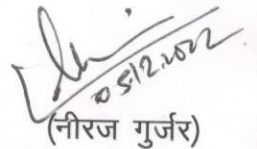 05.12.2022
(नीरज गुर्जर)